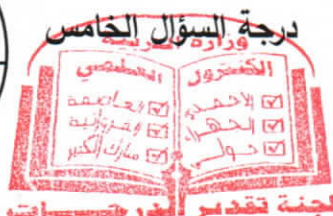 درجة السؤال الخامس
وزارة التربية
الكنترول
العلمي
الأحمدي
الجهراء
حولي
العاصمة
الفروانية
مبارك الكبير
لجنة تقدير الدرجات